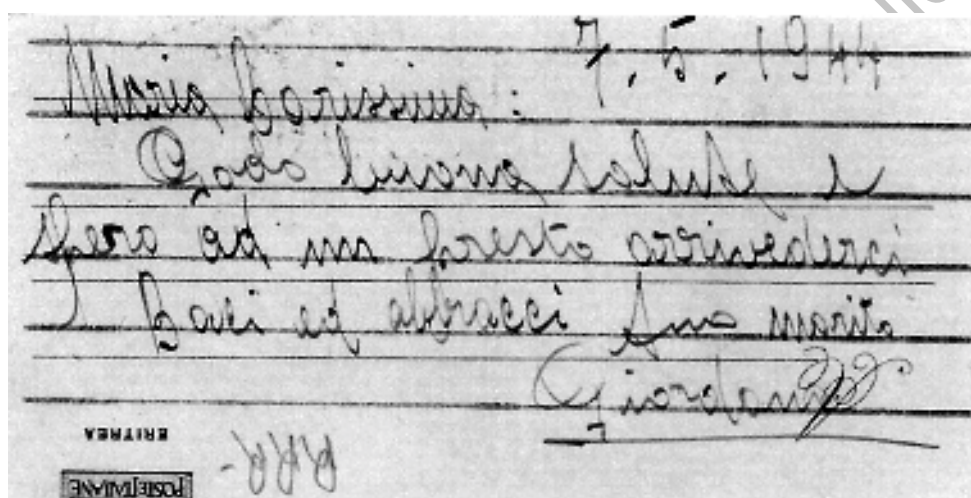 7.5.1944
Maria Carissima:
Godo buona salute e
spero ad un presto arrivederci
Baci ed abbracci Suo marito
Giordano
ERITREA
POSTE ITALIANE